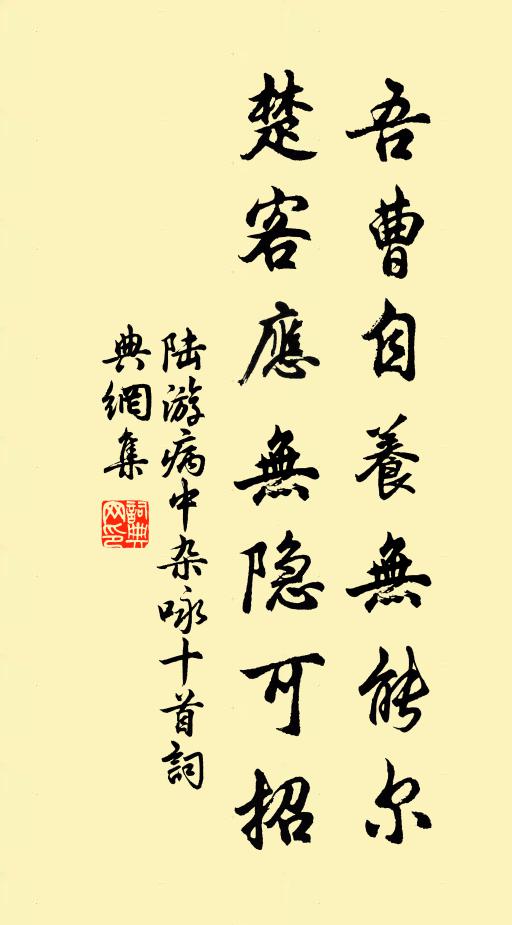 吾曹自養無能尔
楚客應無隐可招
陆游病中杂咏十首詞
典網集
詞典
网印